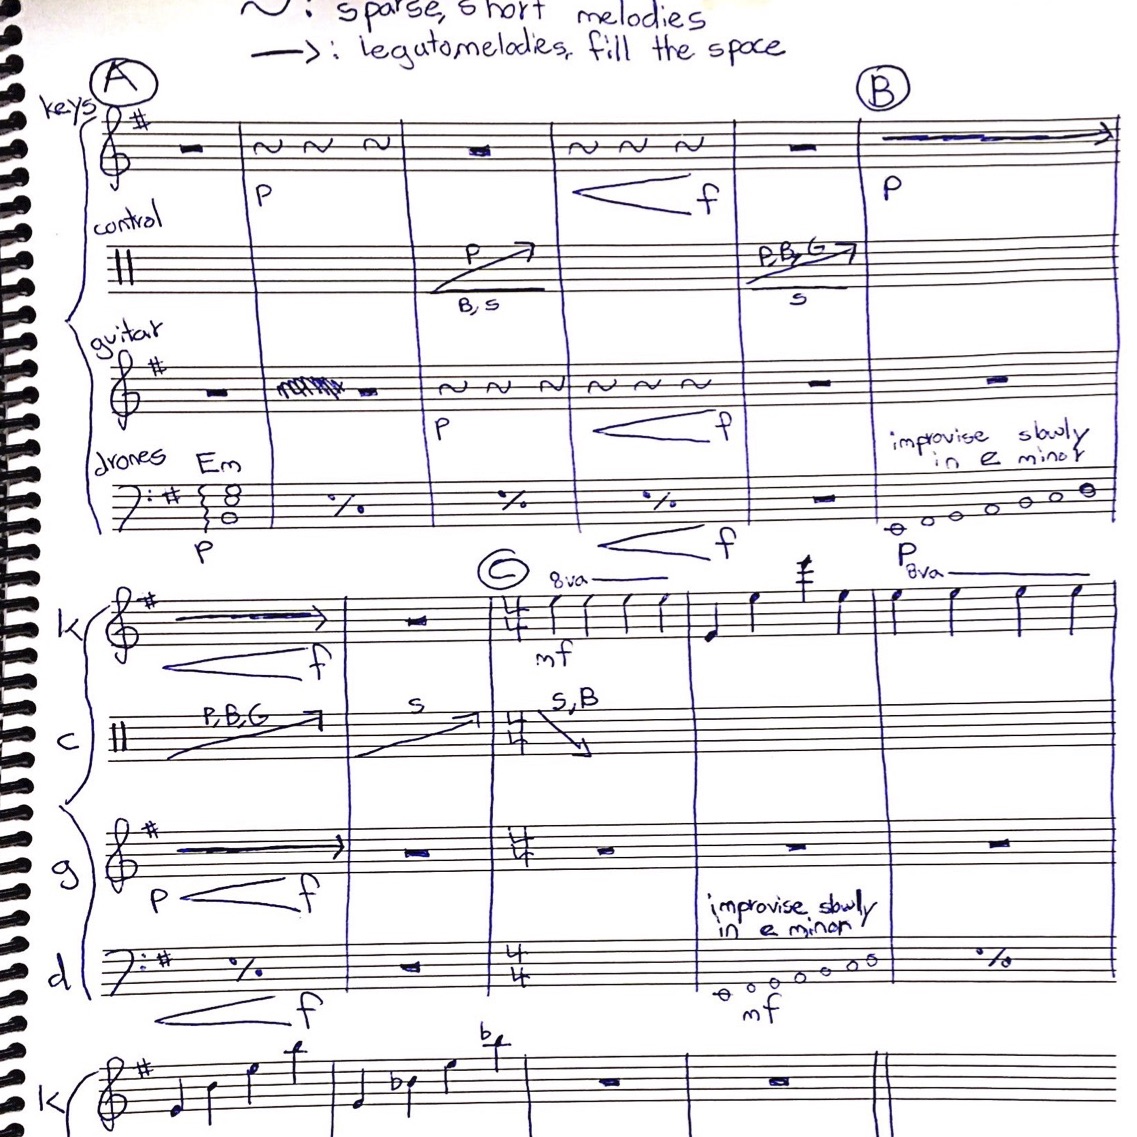 ~ : sparse, short melodies
→ : legatomelodies, fill the space
A
B
keys
p
f
p
control
P
B, S
P, B, G
S
guitar
p
f
drones
Em
improvise slowly
in e minor
p
f
p
C
k
8va
8va
f
mf
c
P, B, G
S
4
4
S, B
g
4
4
p
f
improvise slowly
in e minor
d
4
4
f
mf
k